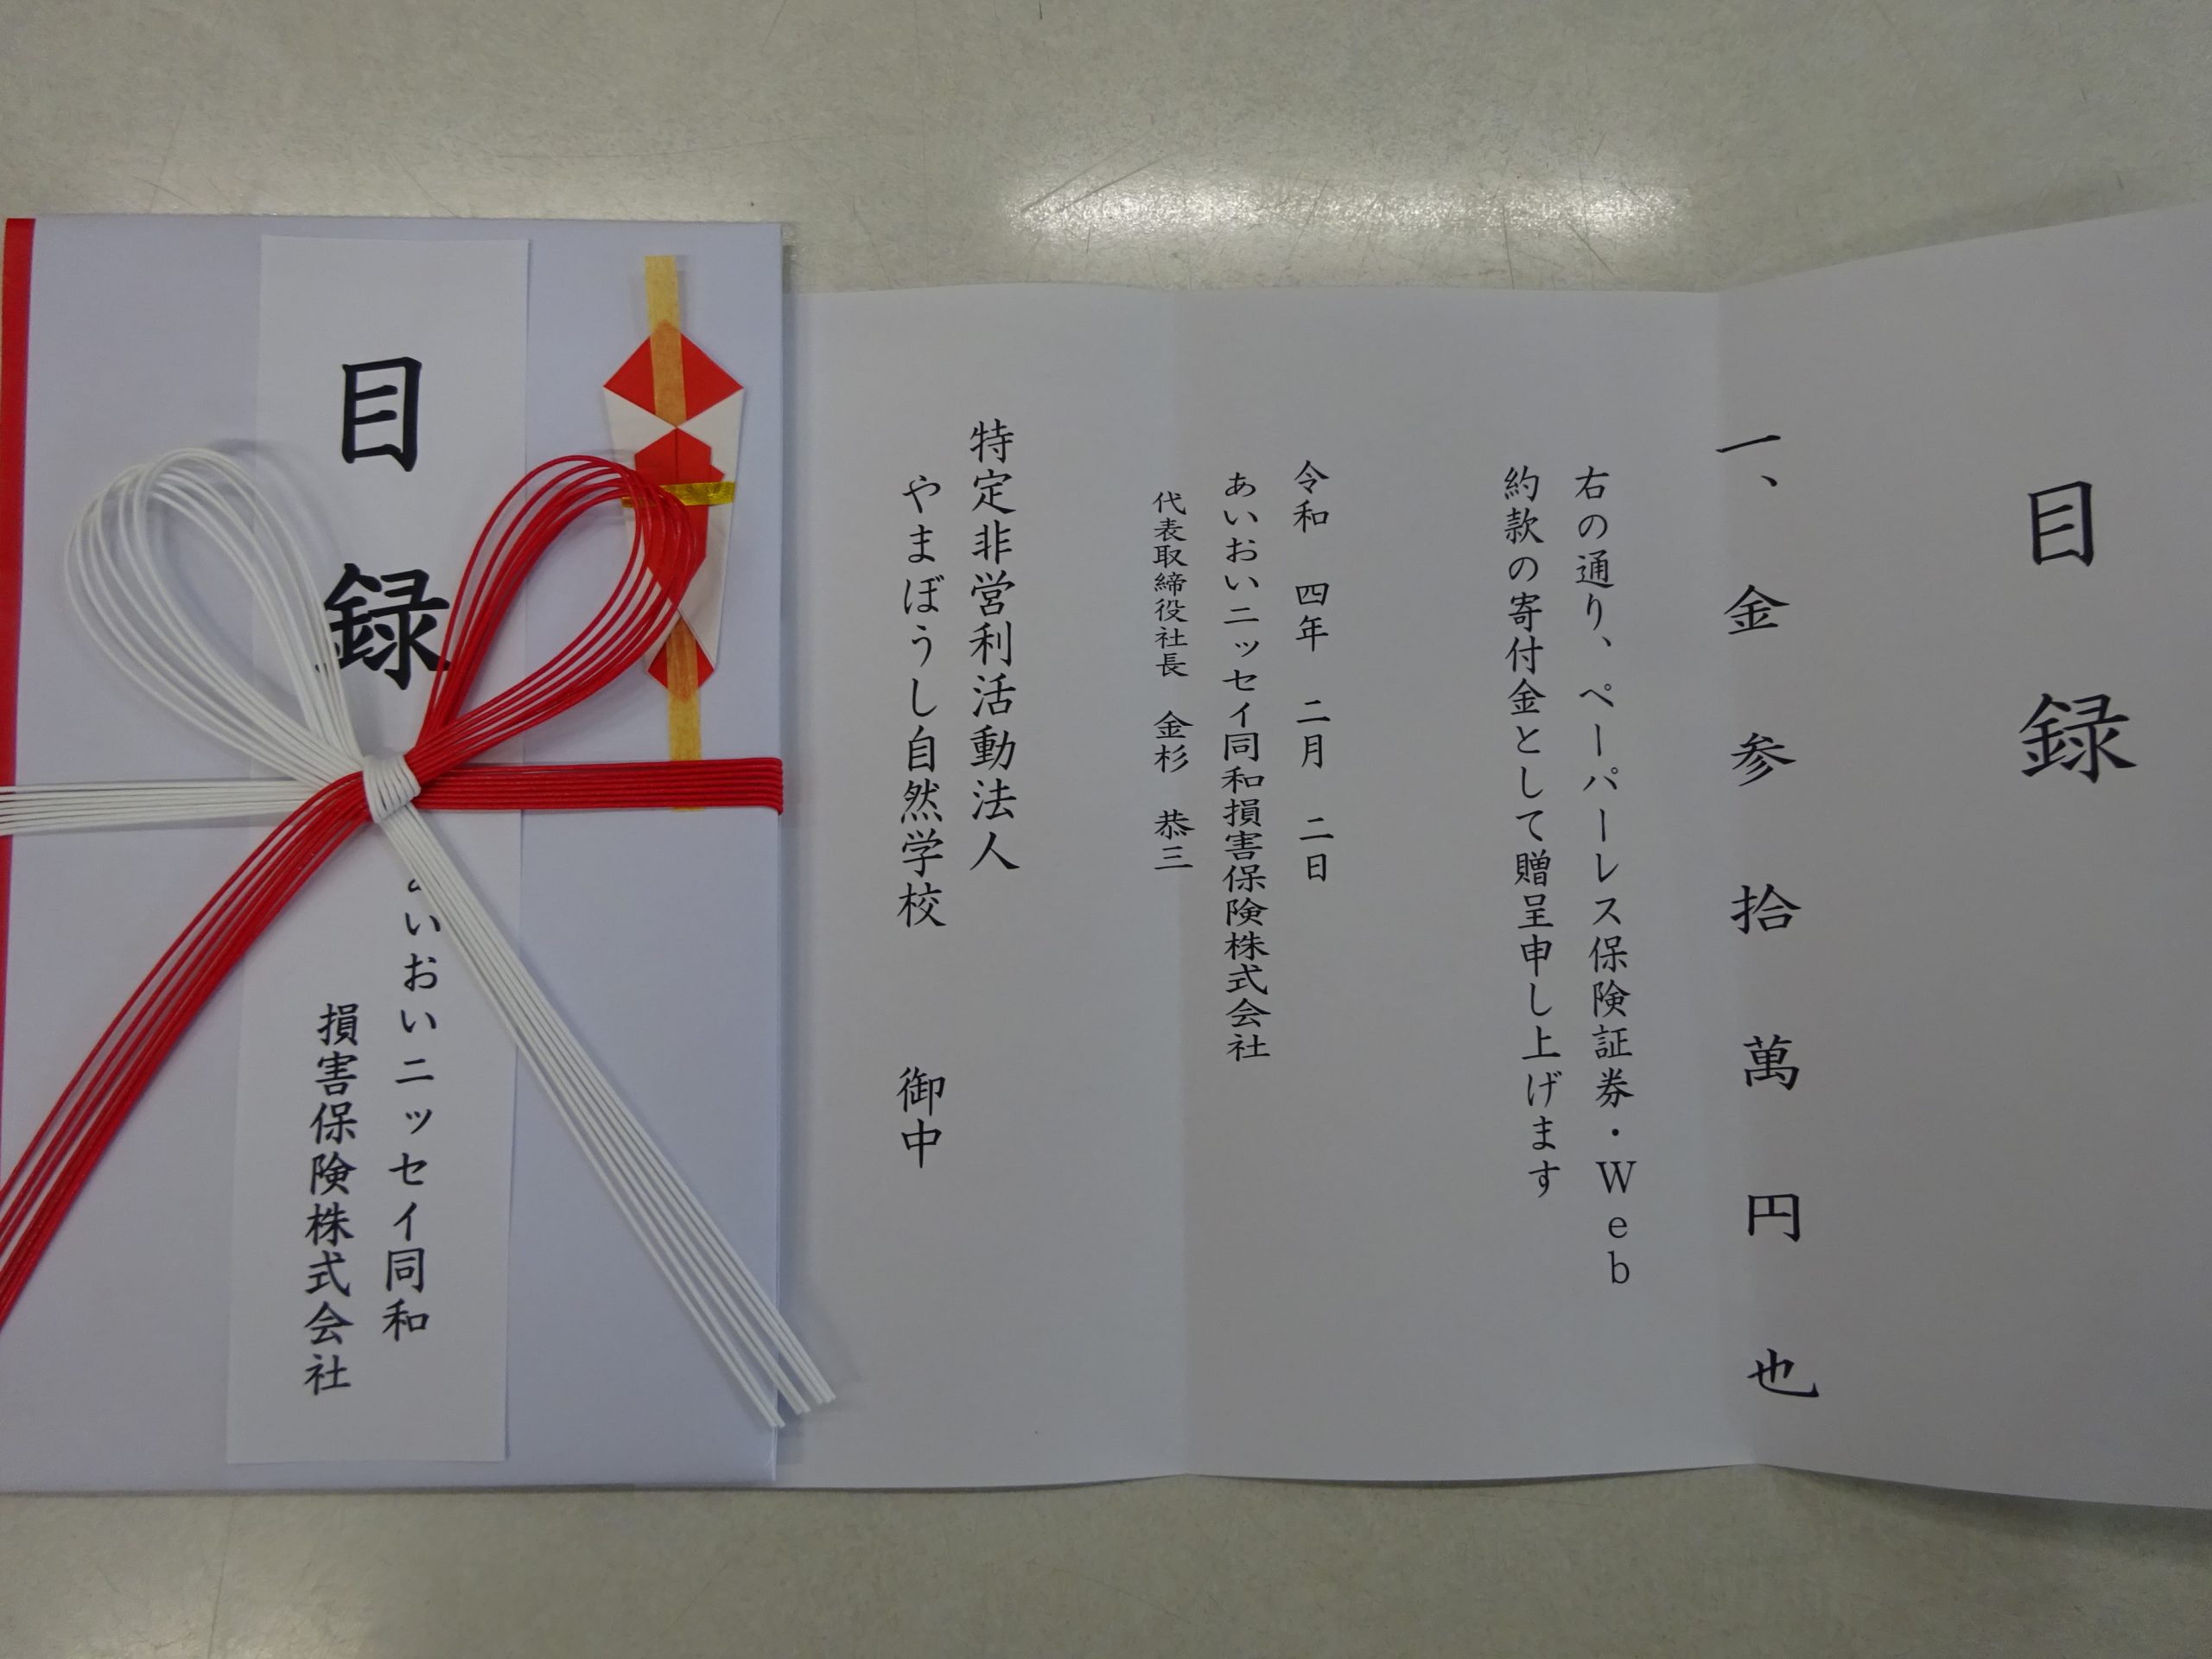 目録
一、金参拾萬円也
右の通り、ペーパーレス保険証券・Web
約款の寄付金として贈呈申し上げます
令和 四年 二月 二日
あいおいニッセイ同和損害保険株式会社
代表取締役社長 金杉 恭三
特定非営利活動法人
やまぼうし自然学校 御中
目録
あいおいニッセイ同和
損害保険株式会社